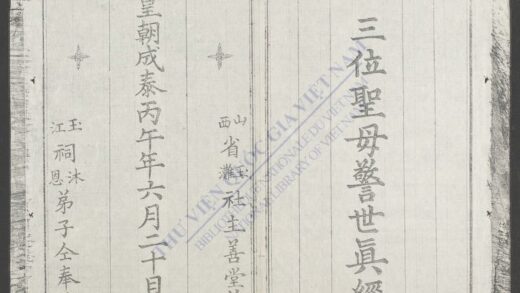 三位聖母警世眞經
山西省玉灘社主善堂
皇朝成泰丙午年六月二十日
玉江祠沐恩弟子仝奉
THƯ VIỆN QUỐC GIA VIỆT NAM
BIBLIOTHÈQUE NATIONALE DU VIETNAM
NATIONAL LIBRARY OF VIETNAM